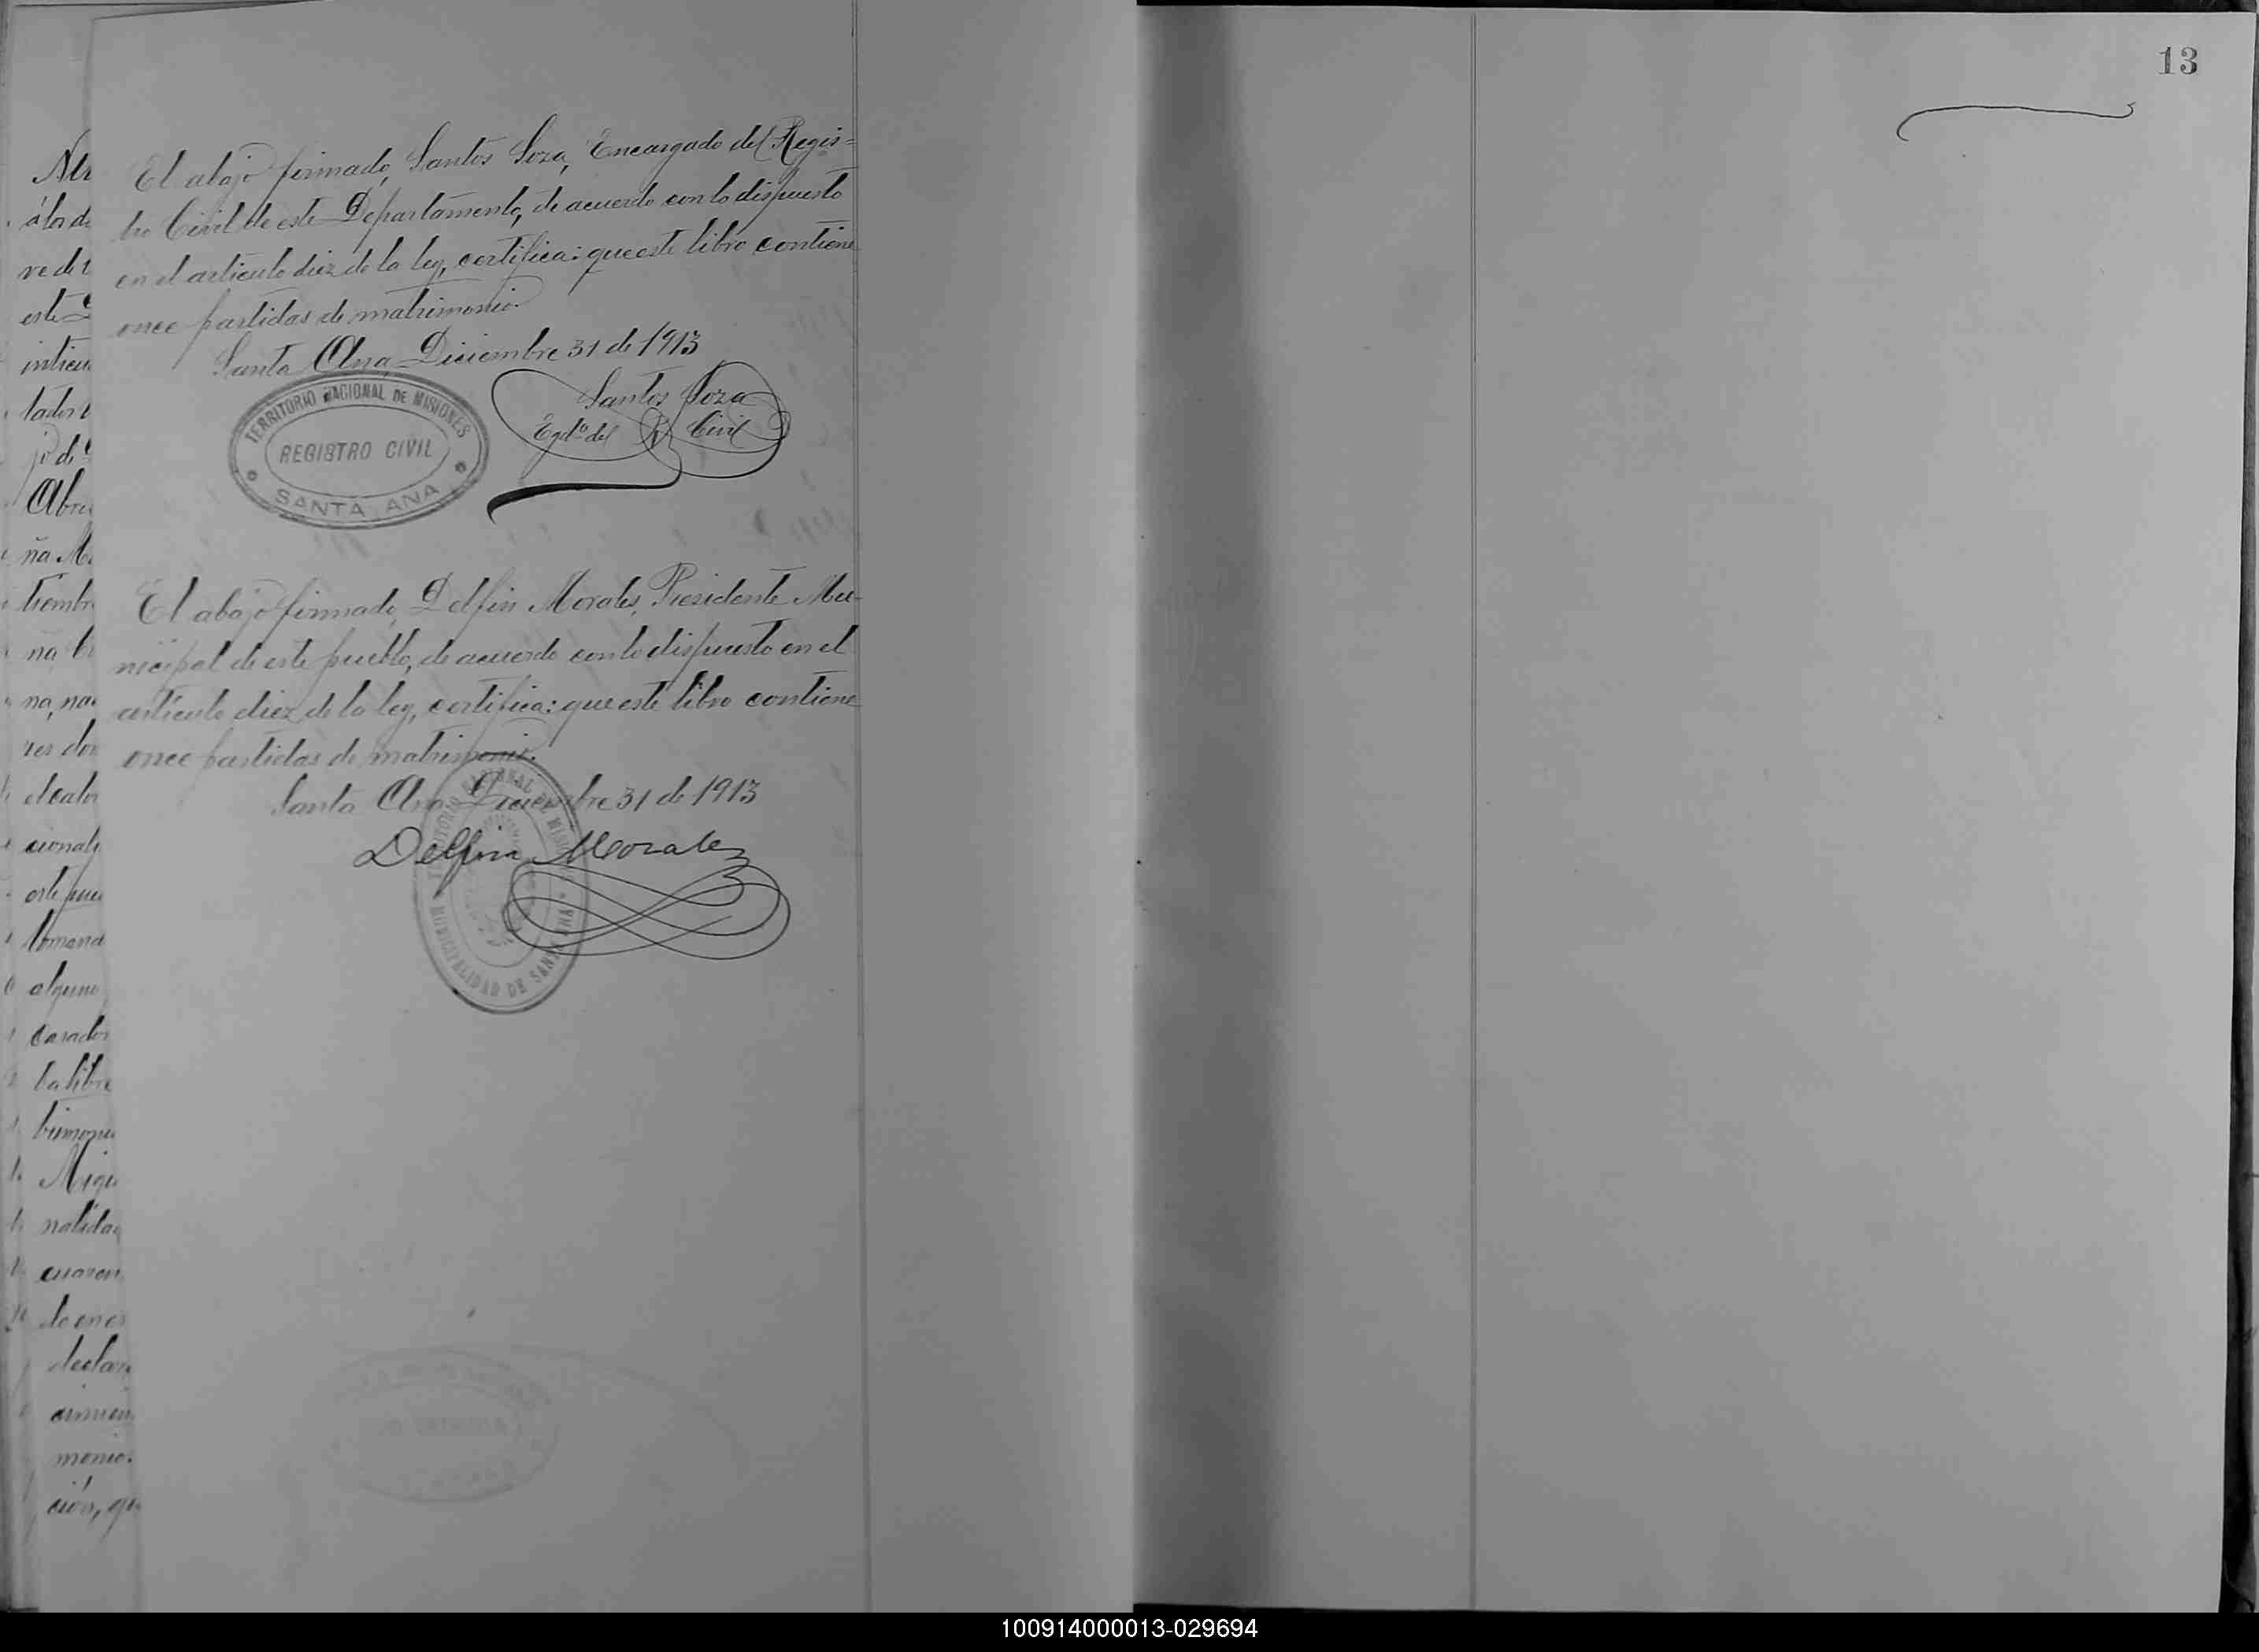 13
El abajo firmado, Santos Soza, Encargado del Regis=
tro Civil de este Departamento, de acuerdo con lo dispuesto
en el articulo diez de la ley, certifica: que este libro contiene
once partidas de matrimonio.
Santa Ana, Diciembre 31 de 1913
Santos Soza
Egdo del R. Civil
TERRITORIO NACIONAL DE MISIONES
REGISTRO CIVIL
SANTA ANA
El abajo firmado, Delfin Morales, Presidente Mu-
nicipal de este pueblo, de acuerdo con lo dispuesto en el
artículo diez de la ley, certifica: que este libro contiene
once partidas de matrimonio.
Santa Ana Diciembre 31 de 1913
Delfin Morales
TERRITORIO NACIONAL DE MISIONES
MUNICIPALIDAD DE SANTA ANA
á los de
este
Abri
ña M
tiembr
na, na
el cator
cional
este pue
alguno
casados
la libre
Migu
nalidad
cuaren
declara
monio.
ción, qu
100914000013-029694